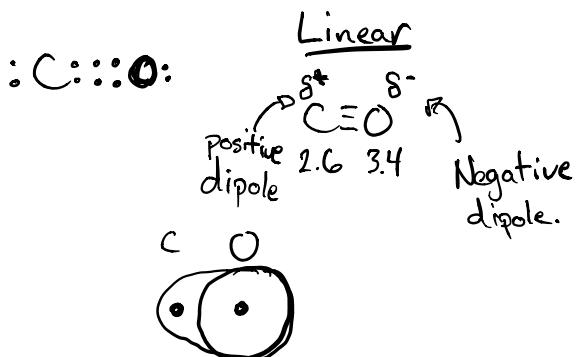 Linear
:C:::O:
δ+ δ-
C≡O
positive dipole
2.6 3.4
Negative dipole.
C O